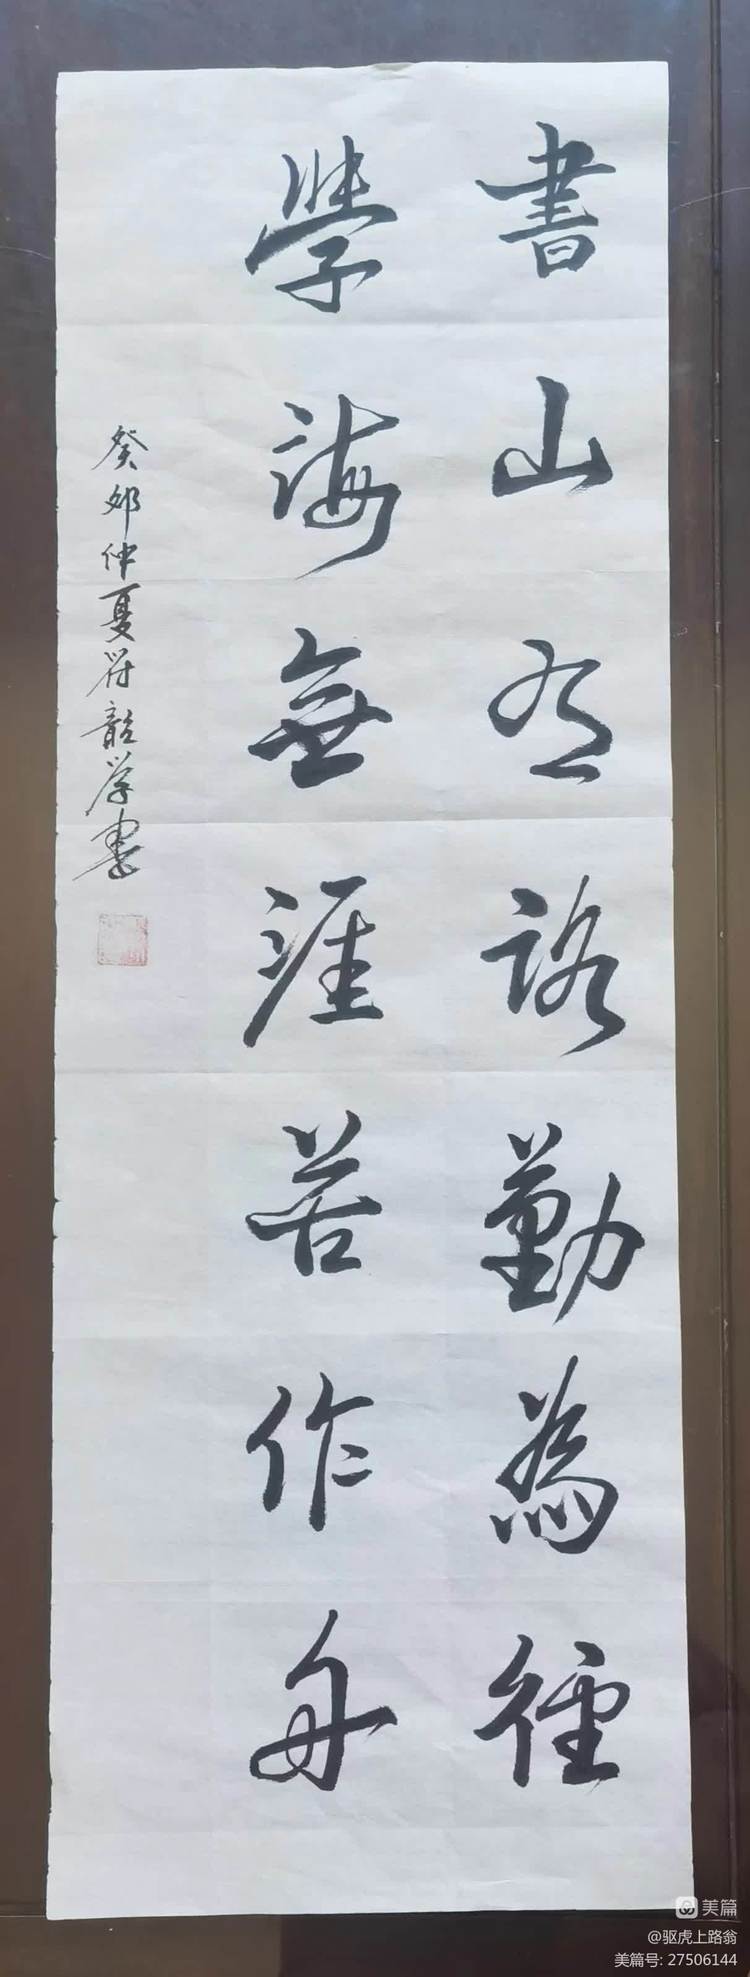 書山有路勤為徑
學海無涯苦作舟
癸卯仲夏符韶学書
美篇
@驱虎上路翁
美篇号: 27506144